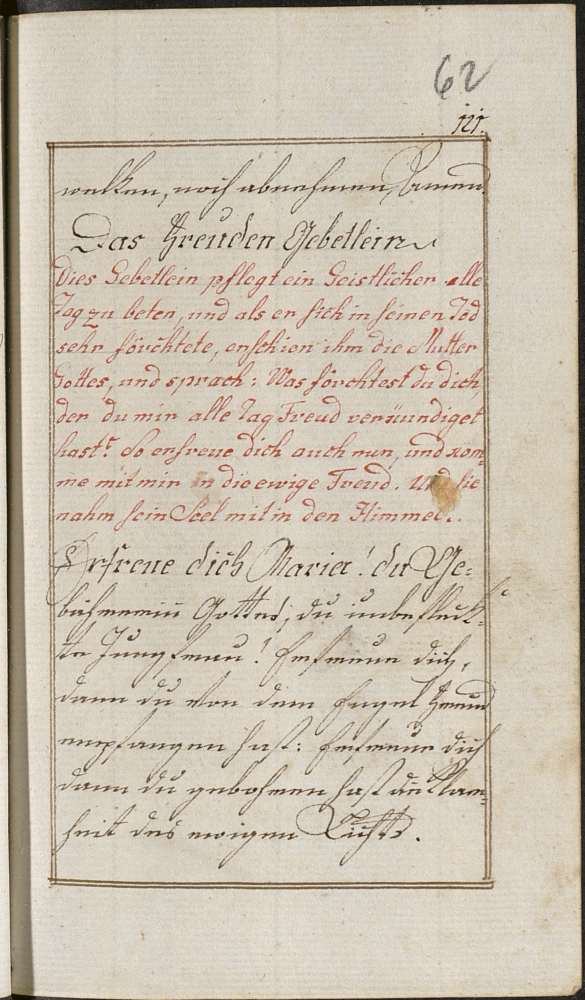 62
121.
welken, noch abnehmen, Amen.
Das Freuden Gebetlein
Dies Gebetlein pflegt ein Geistlicher alle
Tag zu beten, und als er sich in seinen Tod
sehr förchtete, erschien ihm die Mutter
Gottes, und sprach: Was förchtest du dich,
der du mir alle Tag Freud verkündiget
hast? So erfreue dich auch nun, und kom=
me mit mir in die ewige Freud. Und sie
nahm sein Seel mit in den Himmel.
Erfreue dich Maria! du Ge=
bährerin Gottes, du unbefleck=
te Jungfrau! Erfreue dich,
dann du von dem Engel Freud
empfangen hast: Erfreue dich
dann du gebohren hast die Klar=
heit des ewigen Lichts.